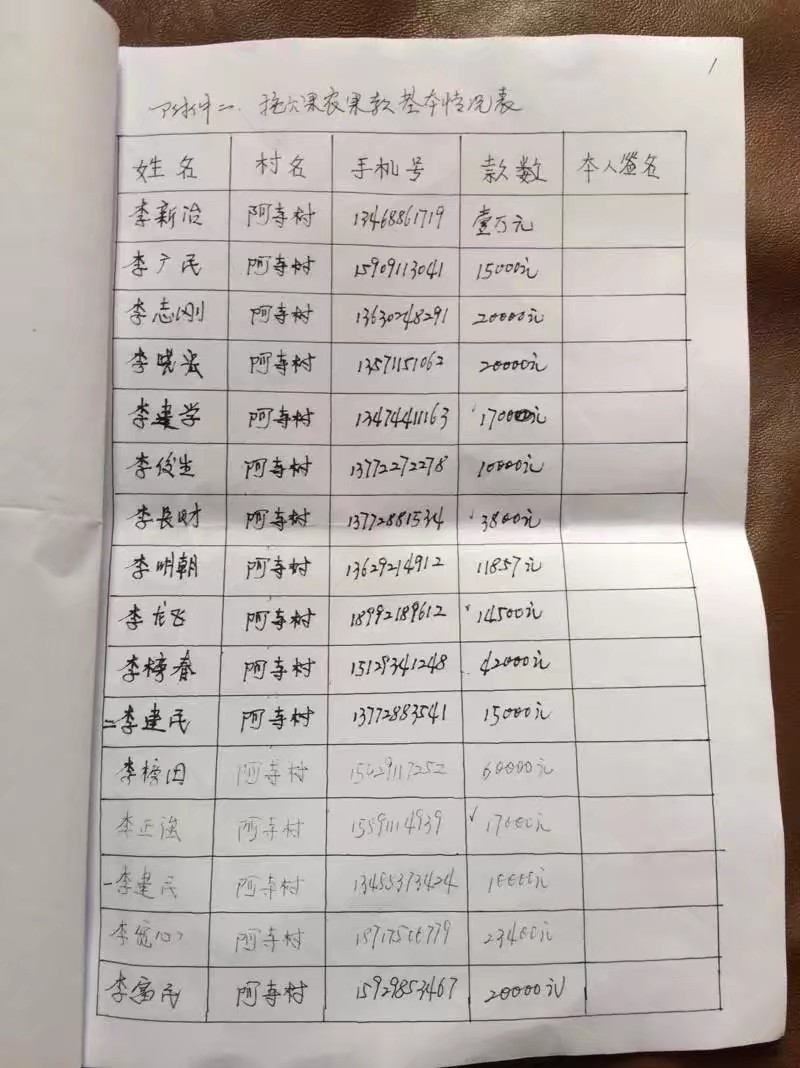 1
附件二、拖欠果农果款基本情况表
姓名 村名 手机号 款数 本人签名
李新治 阿寺村 13468861719 壹万元
李广民 阿寺村 15909113041 15000元
李志刚 阿寺村 13630248291 20000元
李晓宏 阿寺村 13571151062 20000元
李建学 阿寺村 13474411163 17000元
李俊生 阿寺村 13772272278 10000元
李长财 阿寺村 13772881534 3800元
李明朝 阿寺村 13629214912 11857元
李龙飞 阿寺村 18992189612 14500元
李榜春 阿寺村 15129341248 42000元
二李建民 阿寺村 13772883541 15000元
李榜田 阿寺村 15029117252 60000元
李正强 阿寺村 15591114939 √ 17000元
一李建民 阿寺村 13455373424 10000元
李宽心 阿寺村 23400元
李富民 阿寺村 15929853467 20000元